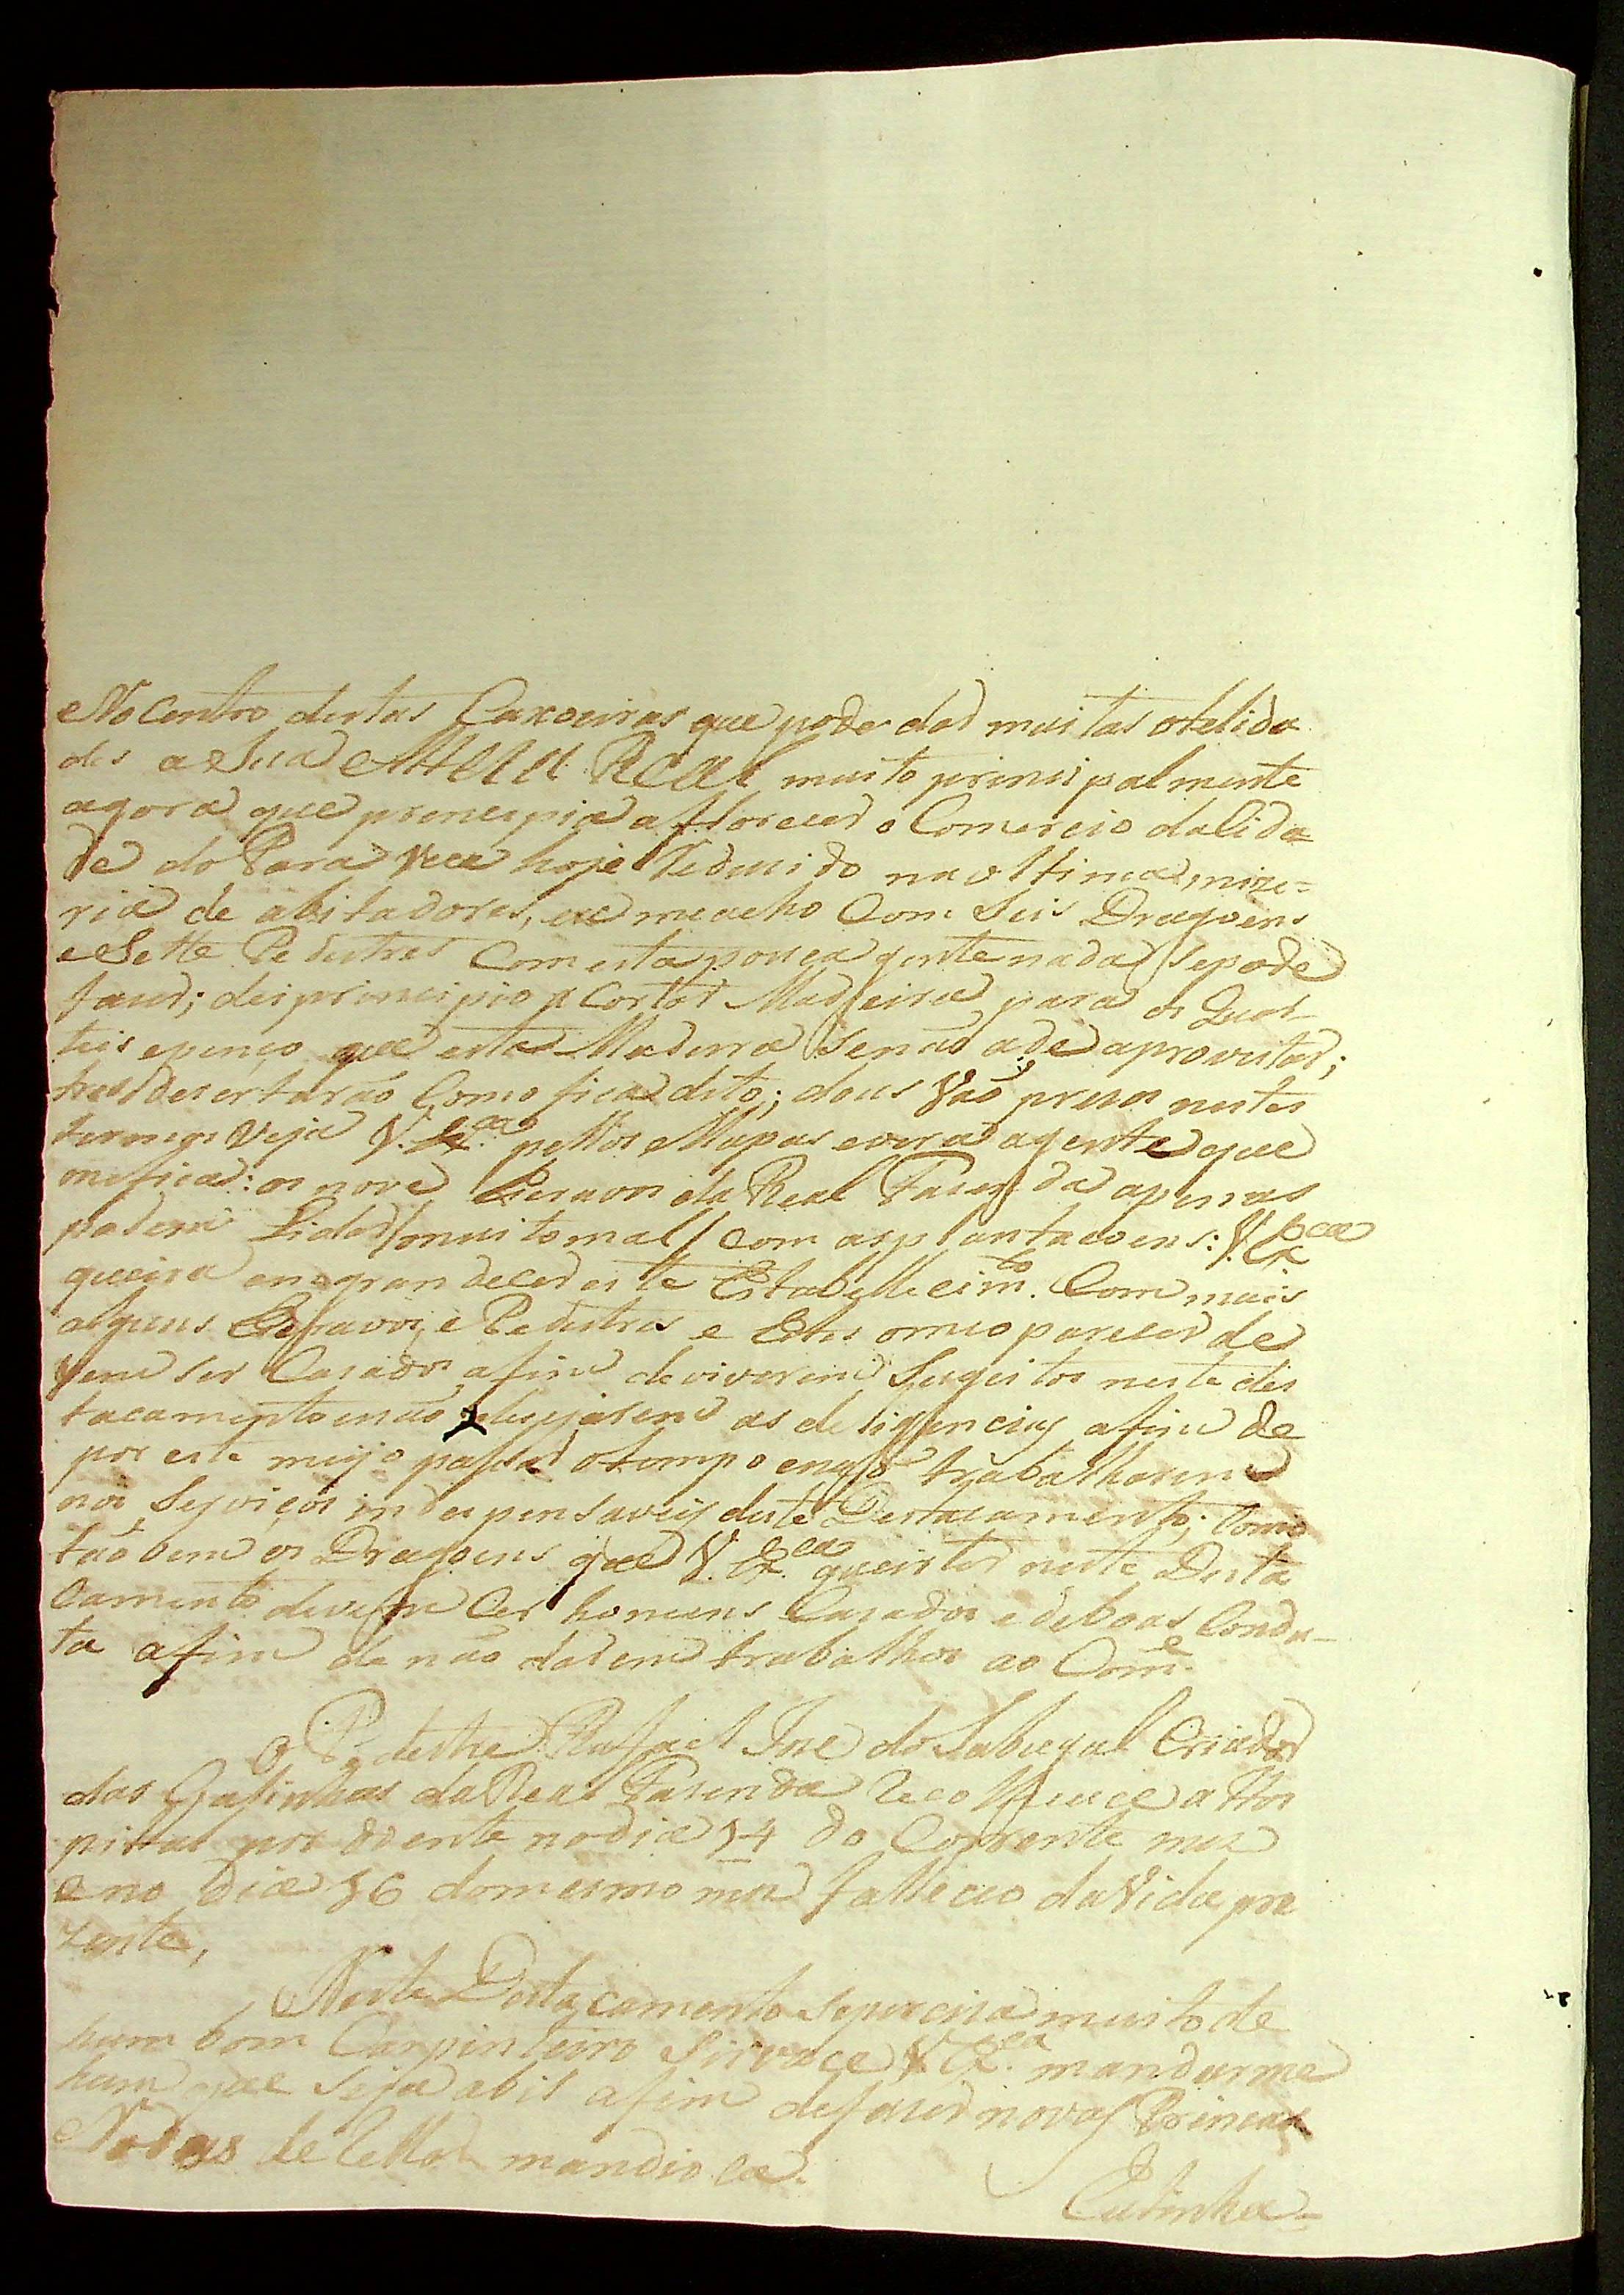 No Centro destas Caxoeiras que pode dar muitas otelida
des a Sua Alteza Real muito prinsipalmente
agora que prencipia a florecer o Comercio da Cida
de do Para Vece hoje Redusido na ultima mize=
ria de abitadores, e me acho Com Seis Dragoens
e Sette Pedestres Com esta pouca gente nada se pode
faser; dei principio a Cortar Madeira para os Quar-
teis e penço que esta Madeira senão a de aproveitar;
tres desertarão Como fica dito; dous Vão prezos nestes
termos Veja V. Ex.ca pellos Mapas e verá a gente que
me fica: os nove Escravos da Real Fasenda apenas
podem Lidar/muito mal/ Com as plantacoens: V. Ex.ca
queira engrandecer este Estabellecim.to Com mais
alguns Escravos, e Pedestres e Estes o meo parecer de
Vem ser Casados afim de viverem Sugeitos neste des
tacamento e não desejarem as deligencias afim de
por este meijo passar o tempo e não trabalharem
nos Serviços indespensaveis deste Destacamento; Como
tão bem os Dragoens que V. Ex.ca queir ter neste Desta
Camento devem Cer homens Casados e de boas Condu-
ta afim de não darem trabalhos ao Com.e
O Pedestre Raffael Jose do Sabugal Criador
das Galinhas da Real Fasenda Recolheuce a Hos
pital por doente no dia 14 do Corrente mes
e no dia 16 do mesmo mes falleceo da Vida pre
zente,
Neste Destacamento se precisa muito de
hum bom Carpinteiro Sirvace V. Ex.ca mandarme
hum que seja abil afim de faser novas Prinças
Rodas de Rellar mandioca.
Eu tinha=